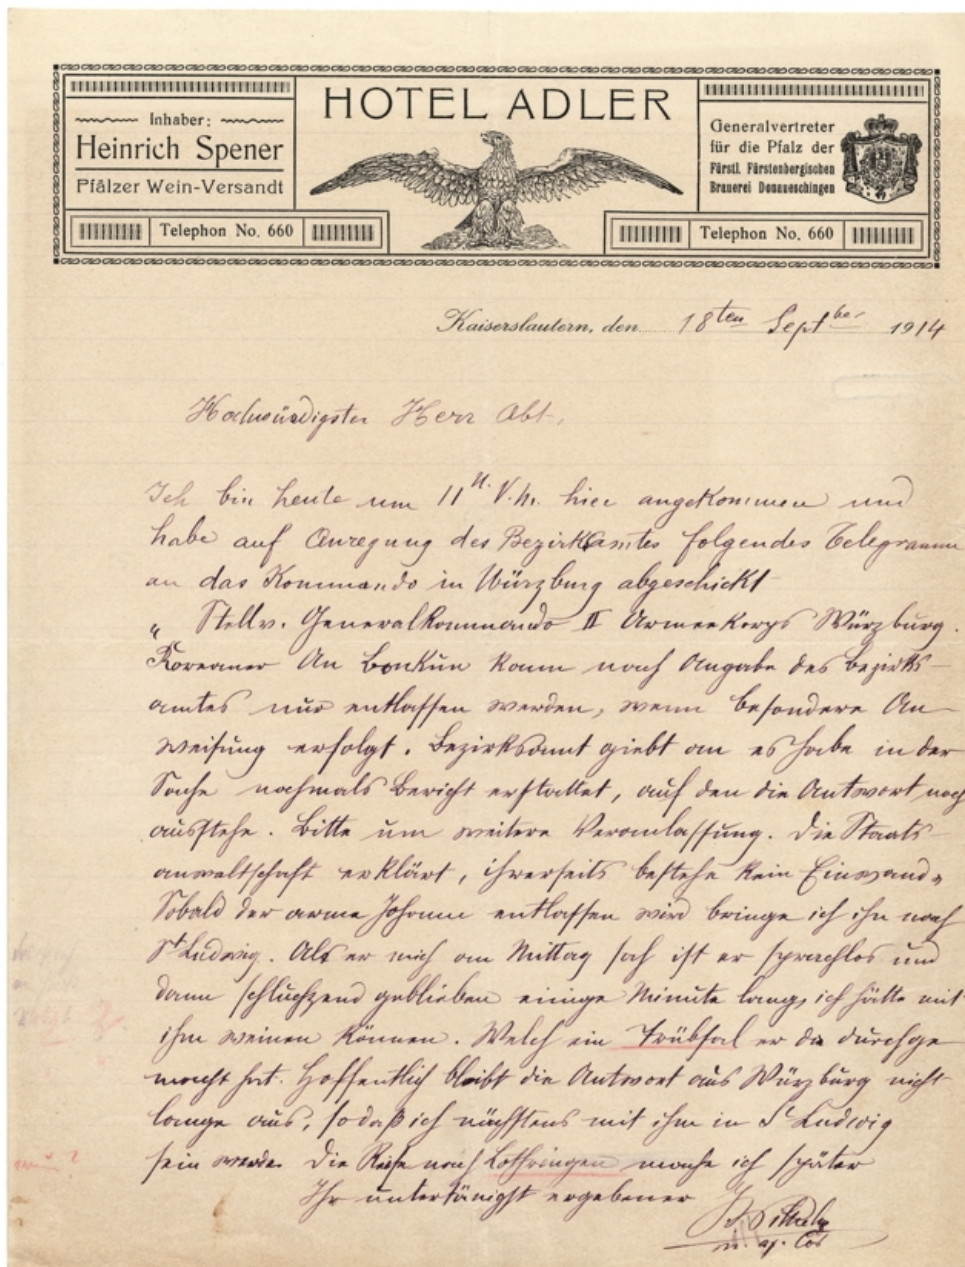 HOTEL ADLER
Inhaber:
Heinrich Spener
Pfälzer Wein-Versandt
Telephon No. 660
Generalvertreter
für die Pfalz der
Fürstl. Fürstenbergischen
Brauerei Donaueschingen
Telephon No. 660
Kaiserslautern, den 18ten Septber 1914
Hochwürdigster Herr Abt,
Ich bin heute um 11 U. V.M. hier angekommen und
habe auf Anregung des Bezirksamtes folgendes Telegramm
an das Kommando in Würzburg abgeschickt
„ Stellv. Generalkommando II Armeekorps Würzburg.
Koreaner An Bonkün kann nach Angabe des Bezirks-
amtes nur entlassen werden, wenn besondere An-
weisung erfolgt. Bezirksamt giebt an es habe in der
Sache nochmals Bericht erstattet, auf den die Antwort noch
ausstehe. Bitte um weitere Veranlassung. Die Staats-
anwaltschaft erklärt, ihrerseits bestehe kein Einwand„
Sobald der arme Johann entlassen wird bringe ich ihn nach
St Ludwig. Als er mich am Mittag sah ist er sprachlos und
dann schluchzend geblieben einige Minute lang, ich hätte mit
ihm weinen können. Welch ein Trübsal er da durchge
macht hat. Hoffentlich bleibt die Antwort aus Würzburg nicht
lange aus, so daß ich nächstens mit ihm in St Ludwig
sein werde. Die Reise nach Lothringen mache ich später
Ihr untertänigst ergebener